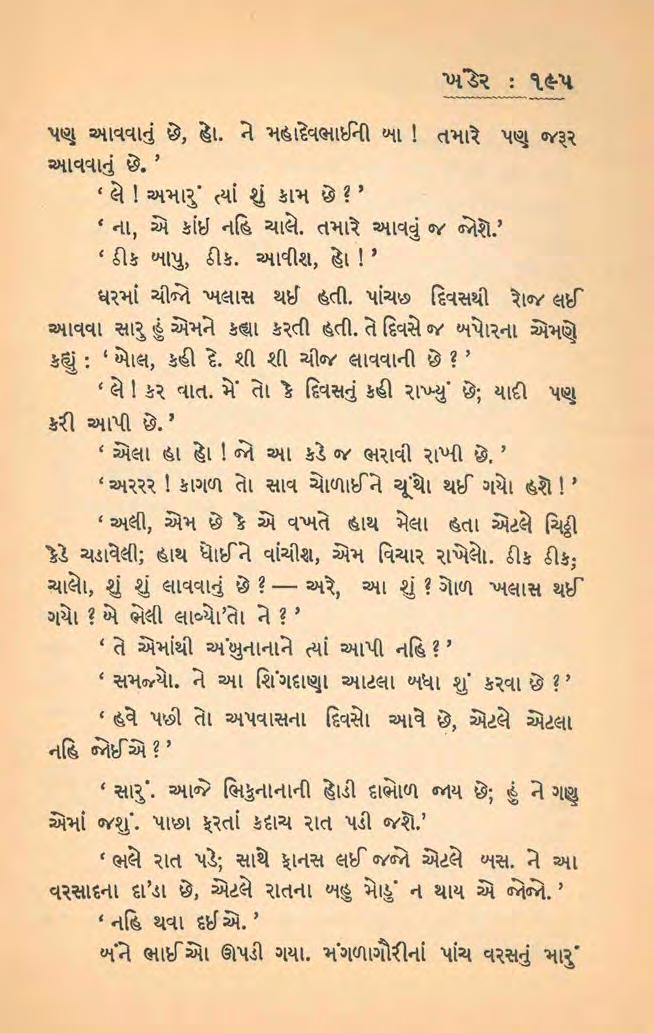 ખંડેર : ૧૯૫
પણ આવવાનું છે, હો. ને મહાદેવભાઈની બા ! તમારે પણ જરૂર
આવવાનું છે.’
‘ લે ! અમારું ત્યાં શું કામ છે ? ’
‘ ના, એ કાંઈ નહિ ચાલે. તમારે આવવું જ જોશે.’
‘ ઠીક બાપુ, ઠીક. આવીશ, હો ! ’
ઘરમાં ચીજો ખલાસ થઈ હતી. પાંચછ દિવસથી રોજ લઈ
આવવા સારુ હું એમને કહ્યા કરતી હતી. તે દિવસે જ બપોરના એમણે
કહ્યું : ‘ બોલ, કહી દે. શી શી ચીજ લાવવાની છે ? ’
‘ લે ! કર વાત. મેં તો કે દિવસનું કહી રાખ્યું છે; યાદી પણ
કરી આપી છે. ’
‘ એલા હા હો ! જો આ કડે જ ભરાવી રાખી છે. ’
‘ અરરર ! કાગળ તો સાવ ચોળાઈને ચૂંથો થઈ ગયો હશે ! ’
‘ અલી, એમ છે કે એ વખતે હાથ મેલા હતા એટલે ચિઠ્ઠી
કેડે ચડાવેલી; હાથ ધોઈને વાંચીશ, એમ વિચાર રાખેલો. ઠીક ઠીક;
ચાલો, શું શું લાવવાનું છે ? — અરે, આ શું ? ગોળ ખલાસ થઈ
ગયો ? બે ભેલી લાવ્યો’તો ને ? ’
‘ તે એમાંથી અંબુનાનાને ત્યાં આપી નહિ ? ’
‘ સમજ્યો. ને આ શિંગદાણા આટલા બધા શું કરવા છે ? ’
‘ હવે પછી તો અપવાસના દિવસો આવે છે, એટલે એટલા
નહિ જોઈએ ? ’
‘ સારું. આજે ભિકુનાનાની હોડી દાભોળ જાય છે; હું ને ગણુ
એમાં જશું. પાછા ફરતાં કદાચ રાત પડી જશે.’
‘ ભલે રાત પડે; સાથે ફાનસ લઈ જજો એટલે બસ. ને આ
વરસાદના દા’ડા છે, એટલે રાતના બહુ મોડું ન થાય એ જોજો. ’
‘ નહિ થવા દઈએ. ’
બંને ભાઈઓ ઊપડી ગયા. મંગળાગૌરીનાં પાંચ વરસનું મારું